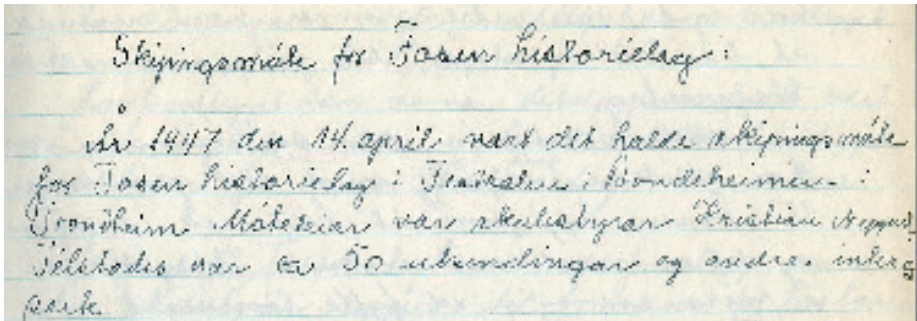 Skipingsmøte for Fosen historielag:
År 1947 den 14. april vart det halde skipingsmøte
for Fosen historielag i Bondeheimen i
Trondheim. Møteleiar var skulestyrar Kristian
Tilstades var ca 50 utbundingar og andre inter